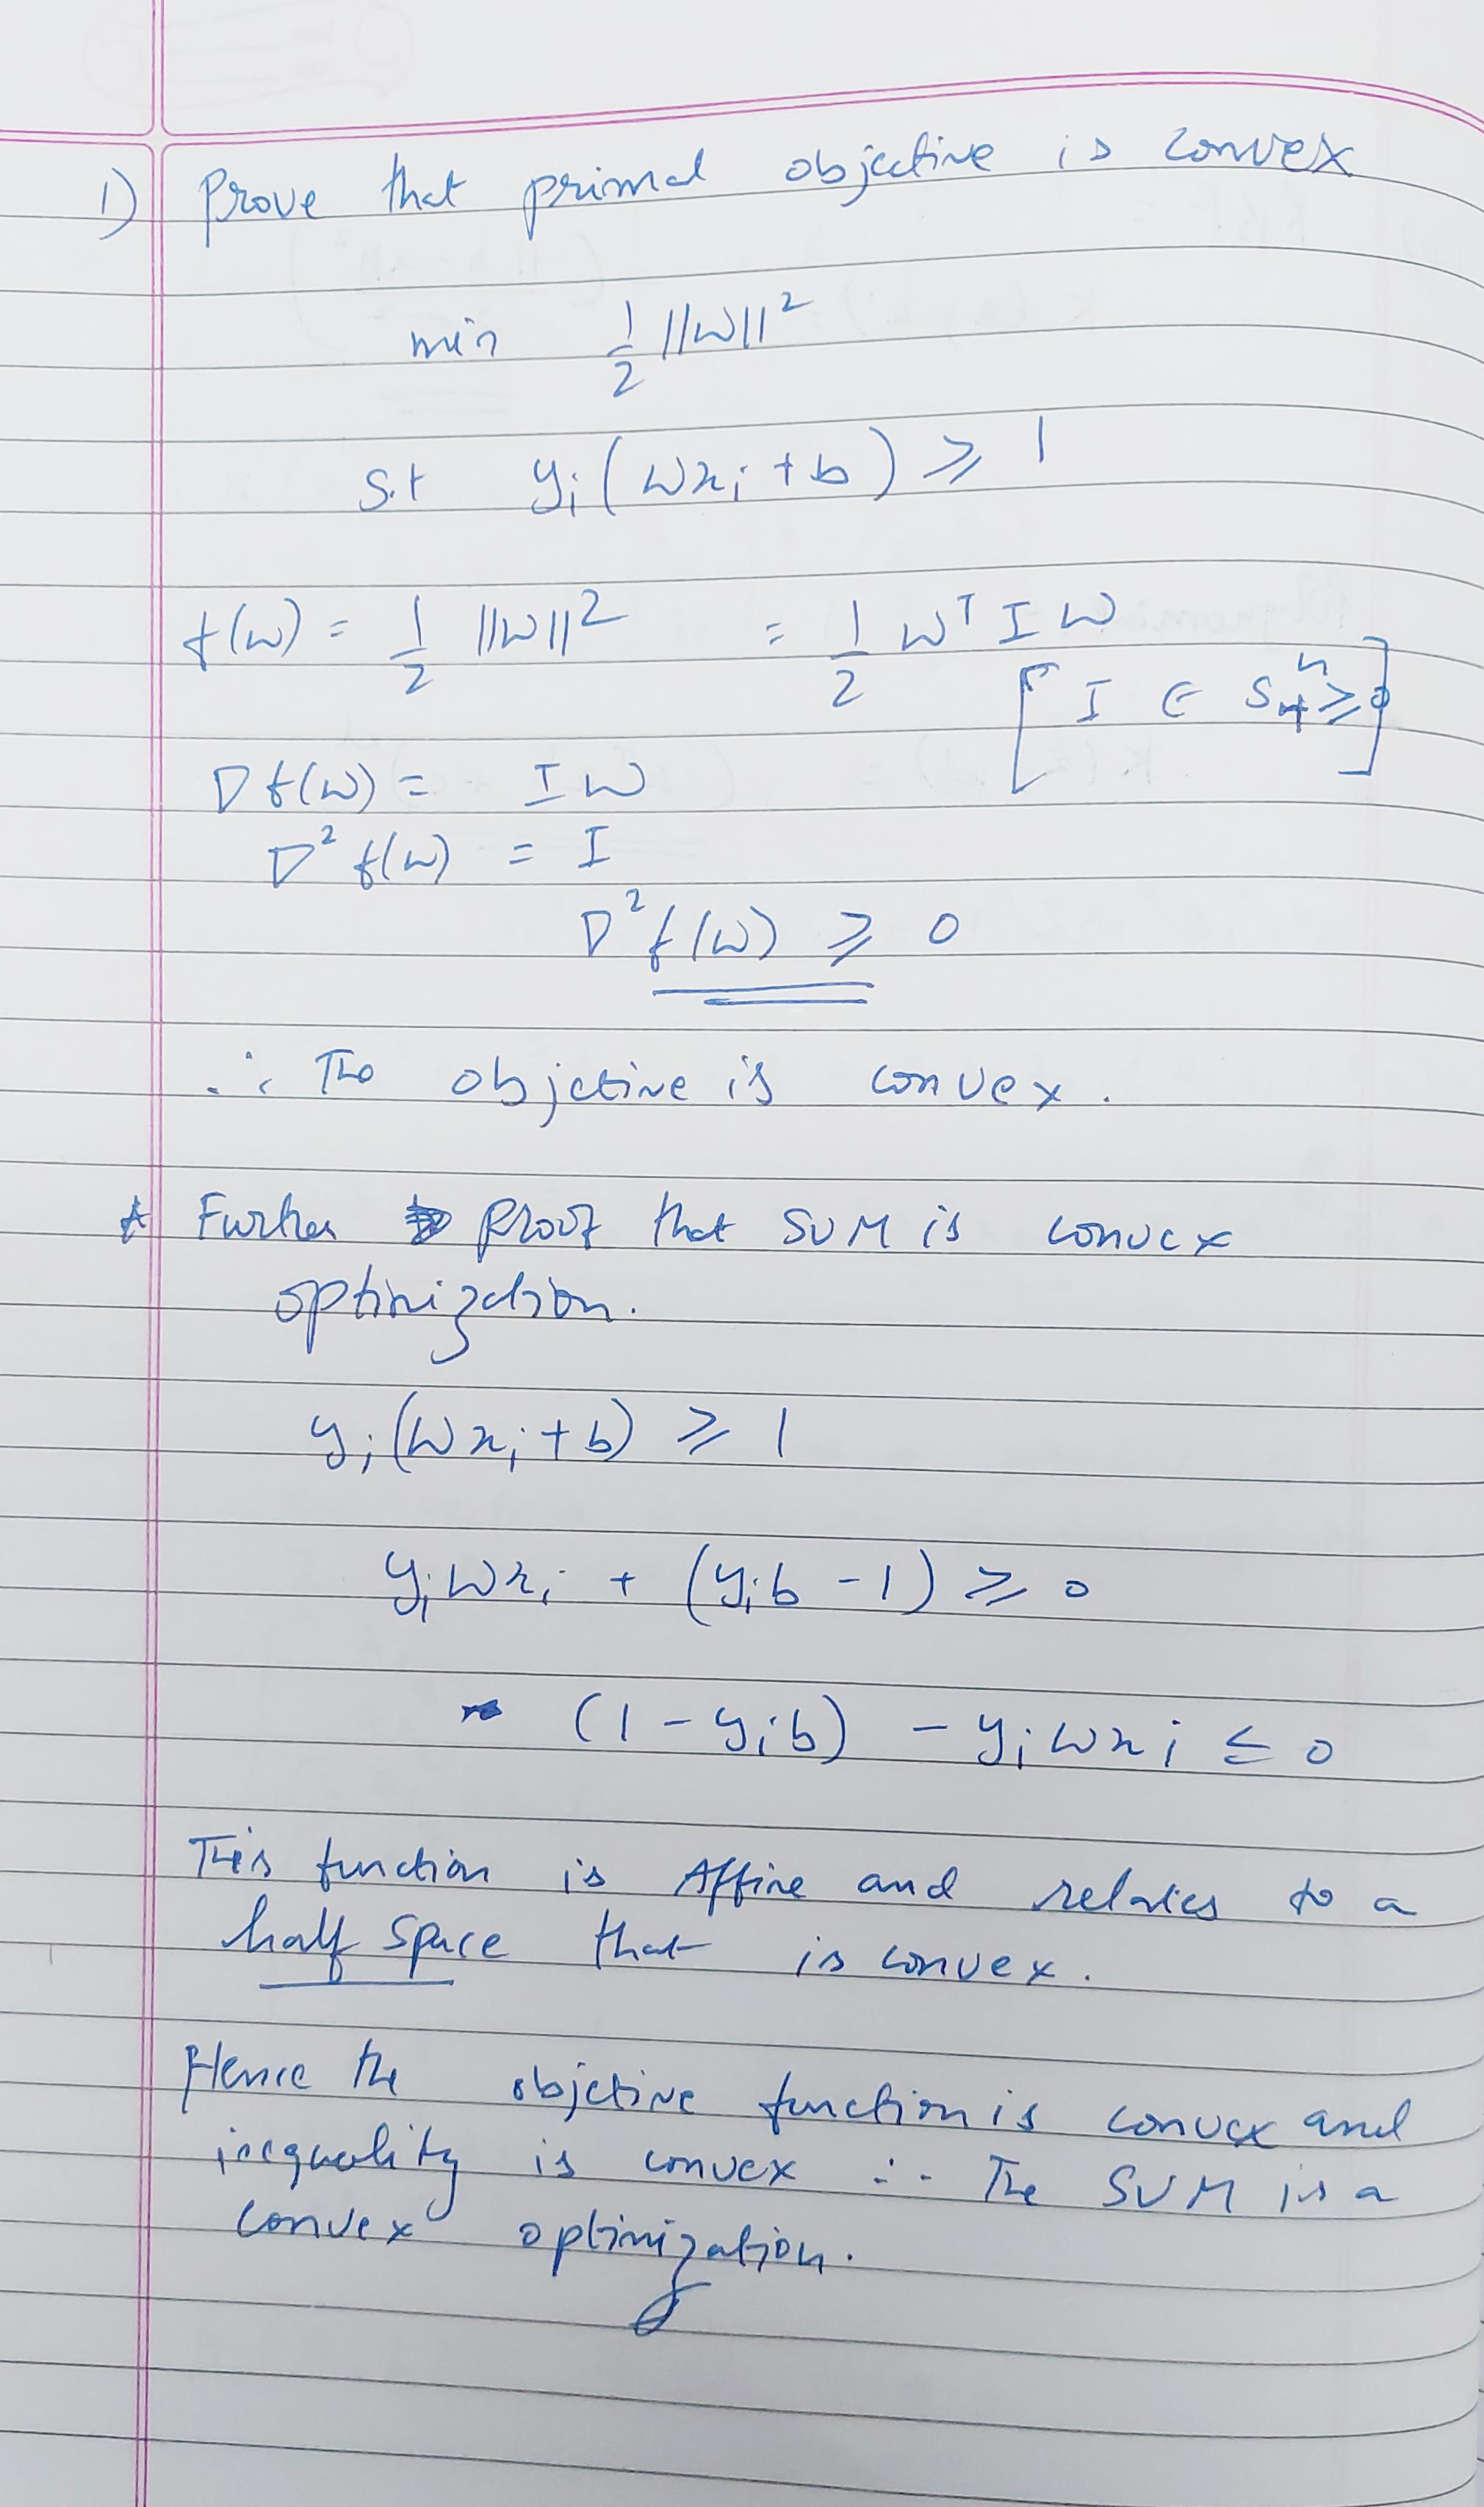 1) Prove that primal objective is convex
min 1/2 ||w||²
S.t yᵢ(wxᵢ + b) ⩾ 1
f(w) = 1/2 ||w||² = 1/2 wᵀ I w
[I ∈ Sⁿ₊ ⩾ 0]
∇f(w) = I w
∇²f(w) = I
∇²f(w) ⩾ 0
∴ The objective is convex.
* Further proof that SVM is convex
optimization.
yᵢ(wxᵢ + b) ⩾ 1
yᵢwxᵢ + (yᵢb - 1) ⩾ 0
(1 - yᵢb) - yᵢwxᵢ ≤ 0
This function is Affine and relates to a
half space that is convex.
Hence the objective function is convex and
inequality is convex ∴ The SVM is a
convex optimization.